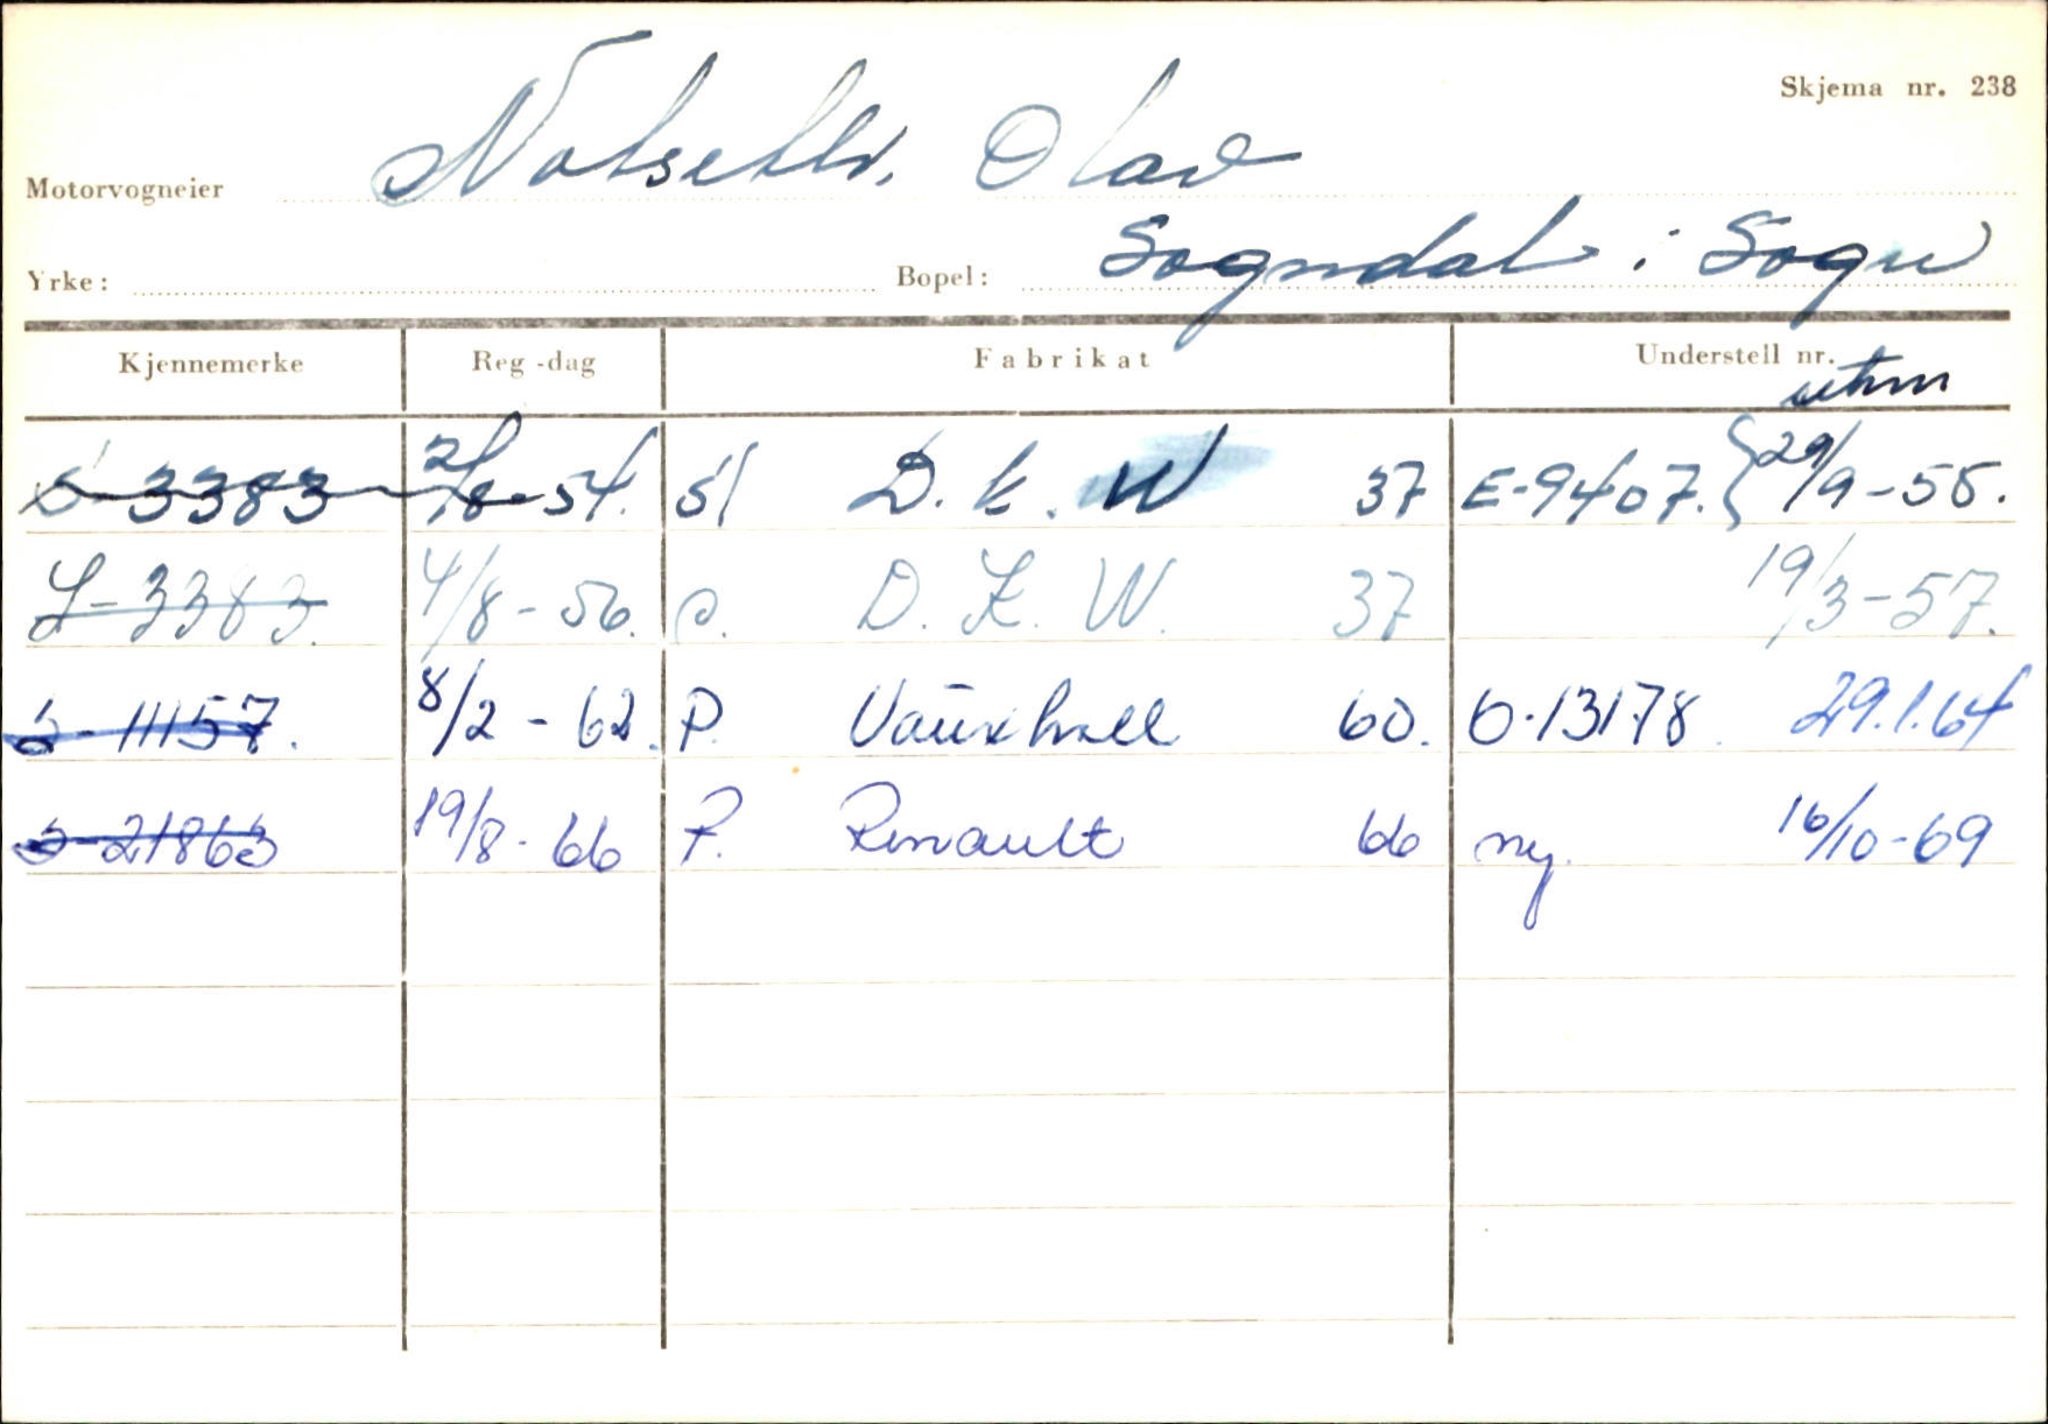 Skjema nr. 238
Motorvogneier Notseter, Olav
Yrke: Bopel: Sogndal i Sogn
Kjennemerke Reg-dag Fabrikat Understell nr. uthm
S-3383 2/8-54. sl D.K.W 37 E-9407. 29/9-55.
S-3383. 4/8-56. p. D.K.W. 37 19/3-57.
S-11157. 8/2-62. P. Vauxhall 60. O-13178. 29.1.64
S-21863 19/8-66 P. Renault 66 ny. 16/10-69